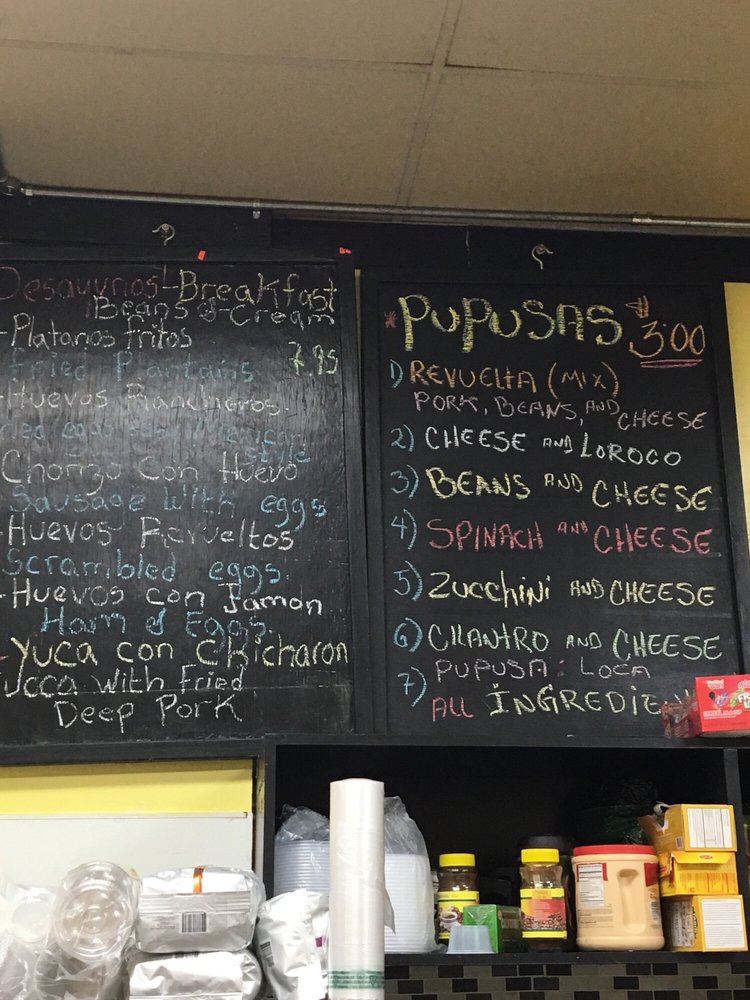 Desayunos-Breakfast
Beans & Cream
-Platanos fritos
Fried Plantains 7.95
-Huevos Rancheros.
Mexican
style
Chorizo con Huevo
Sausage With eggs
-Huevos Revueltos
Scrambled eggs.
-Huevos con Jamon
Ham & Eggs.
-Yuca con Chicharon
Yucca With Fried
Deep Pork
*PUPUSAS $3.00
1) REVUELTA (MIX)
PORK, BEANS, AND CHEESE
2) CHEESE AND LOROCO
3) BEANS AND CHEESE
4) SPINACH AND CHEESE
5) ZUCCHINI AND CHEESE
6) CILANTRO AND CHEESE
7) PUPUSA: LOCA
ALL INGREDIE